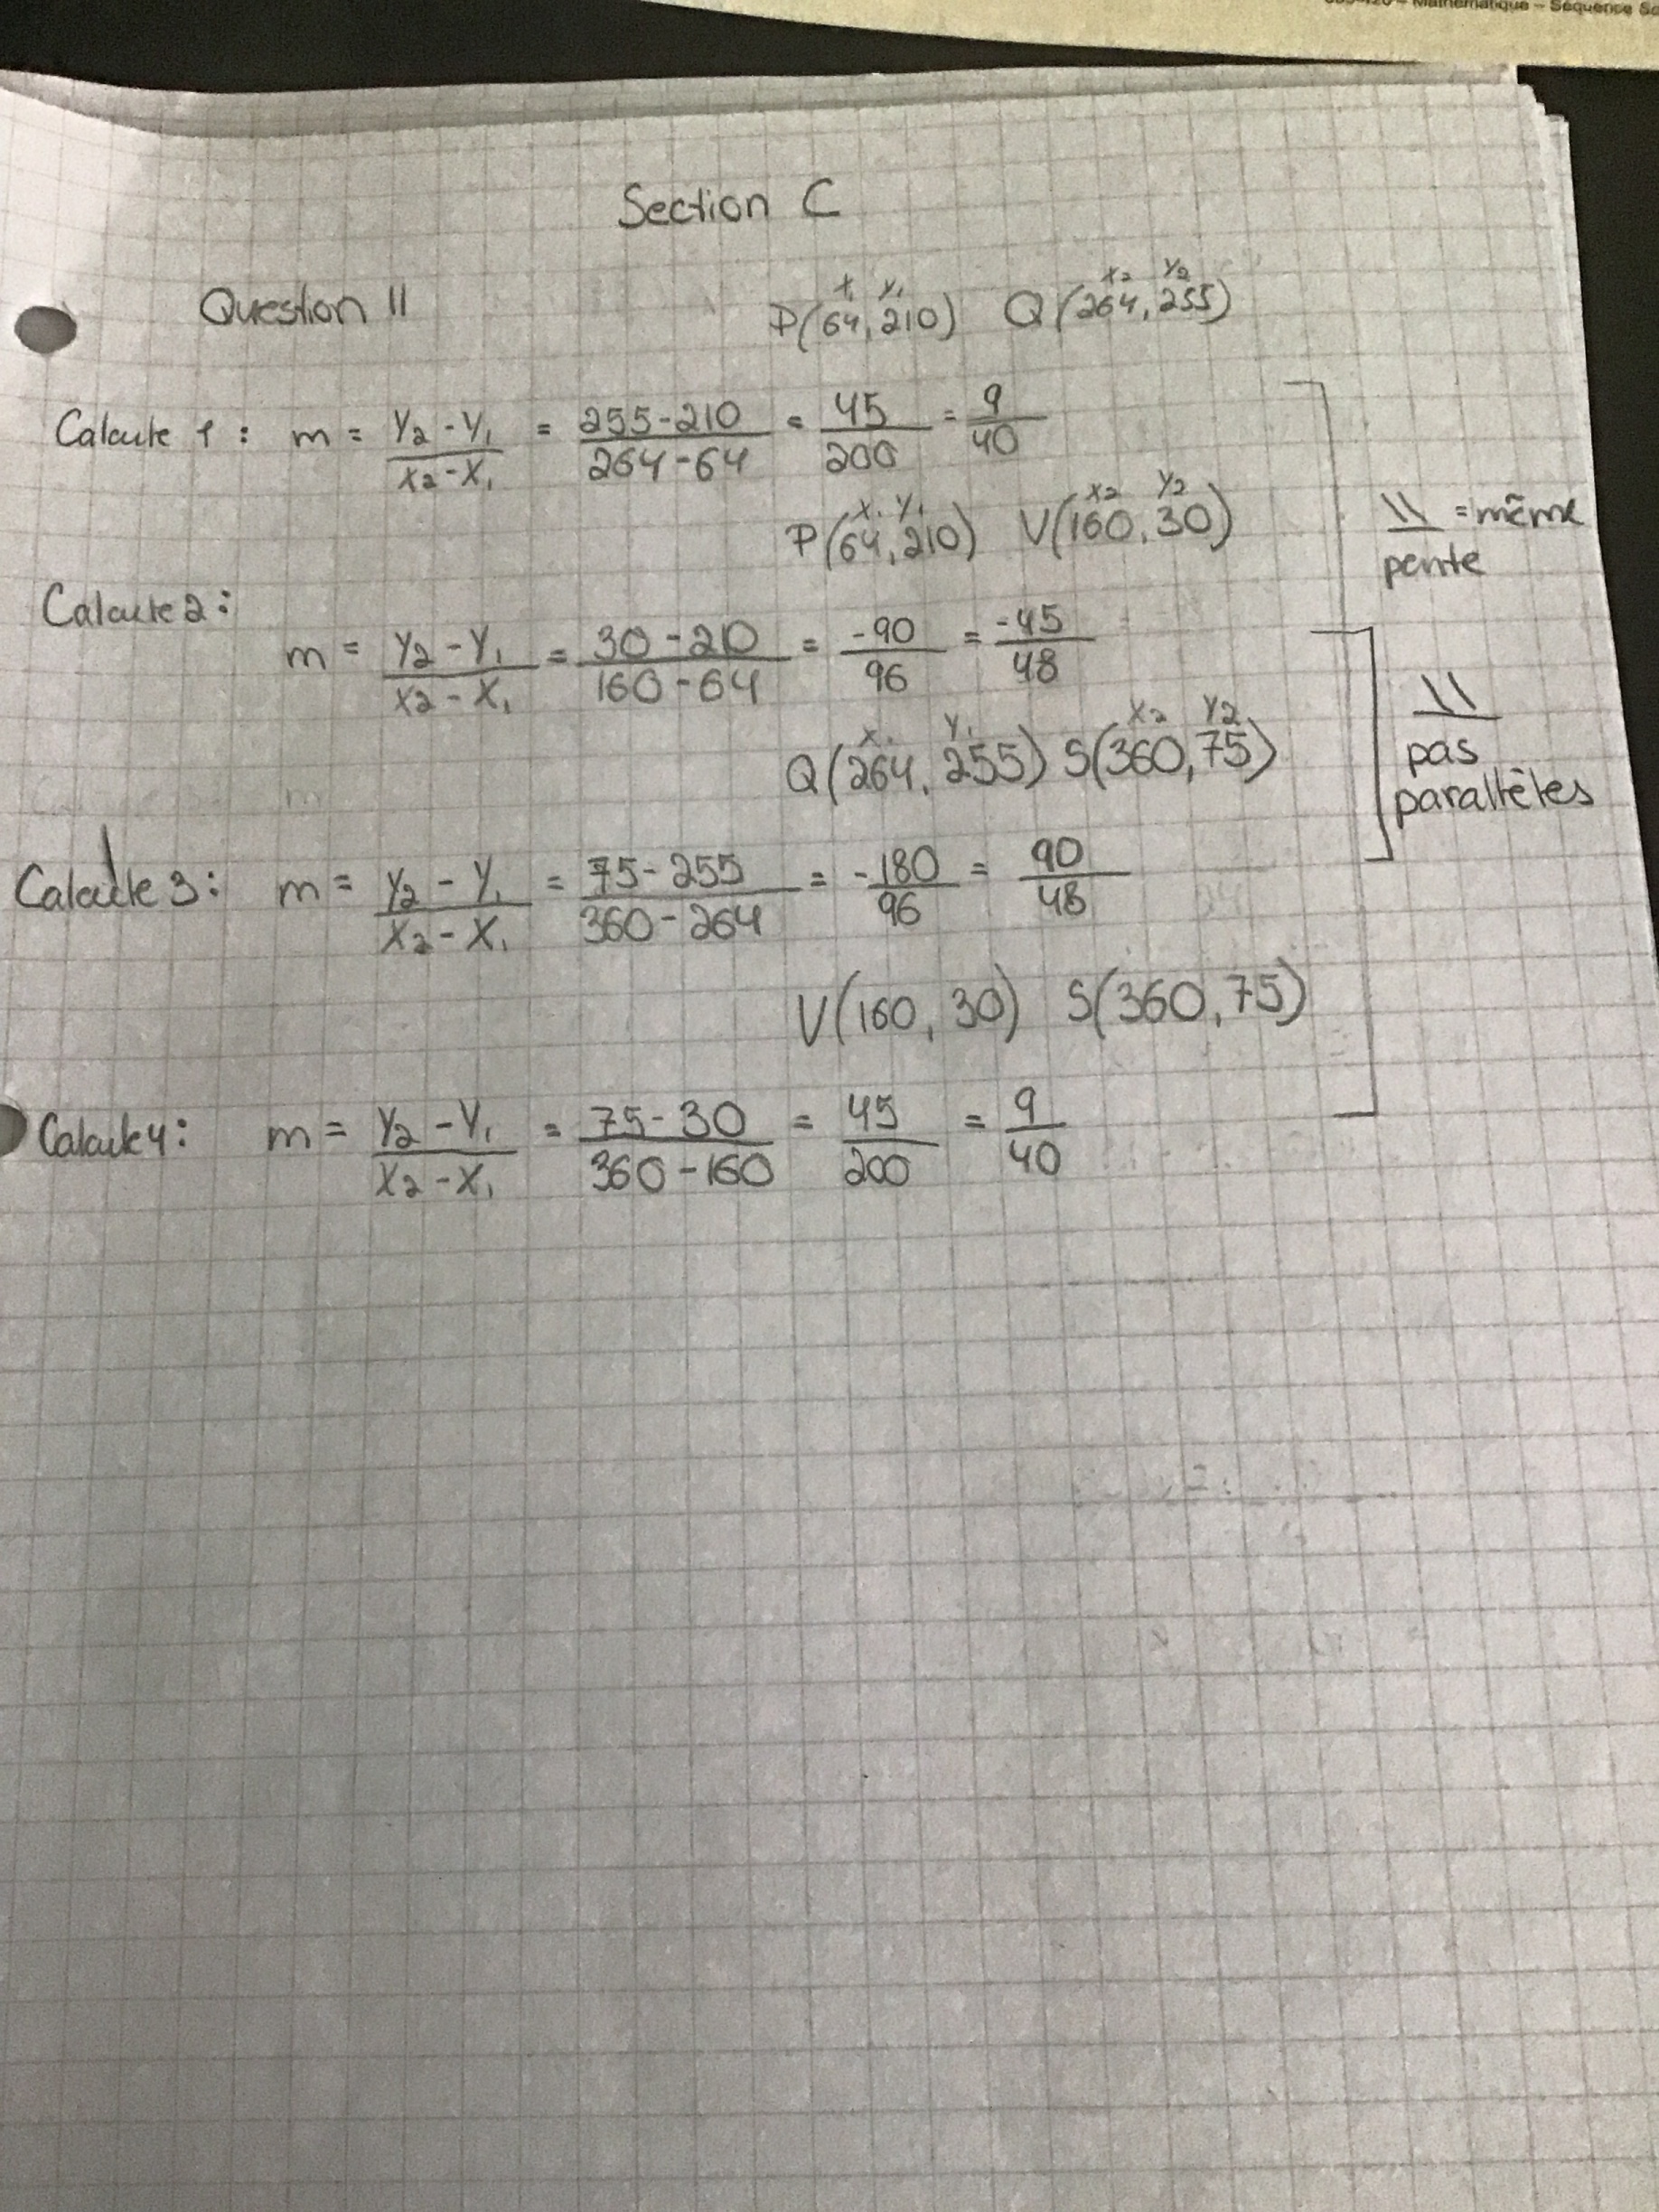 Mathématique – Séquence
Section C
Question 11
x₁ y₁ x₂ y₂
P(64,210) Q(264,255)
Calcule 1 : m = y₂-y₁/x₂-x₁ = 255-210/264-64 = 45/200 = 9/40
x₁ y₁ x₂ y₂
P(64,210) V(160,30)
\\ = même
pente
Calcule 2 :
m = y₂-y₁/x₂-x₁ = 30-210/160-64 = -90/96 = -45/48
\\
pas
parallèles
x₁ y₁ x₂ y₂
Q(264,255) S(360,75)
Calcule 3 : m = y₂-y₁/x₂-x₁ = 75-255/360-264 = -180/96 = 90/48
V(160,30) S(360,75)
Calcule 4 : m = y₂-y₁/x₂-x₁ = 75-30/360-160 = 45/200 = 9/40